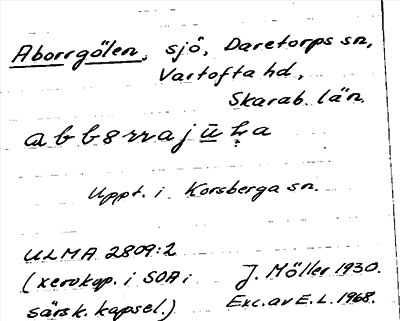 Aborrgölen, sjö, Daretorps sn,
Vartofta hd,
Skarab. län.
Uppt. i Korsberga sn.
ULMA 2809:2
(xerokop. i SOA i J. Möller 1930.
särsk. kapsel.) Exc. av E. L. 1968.